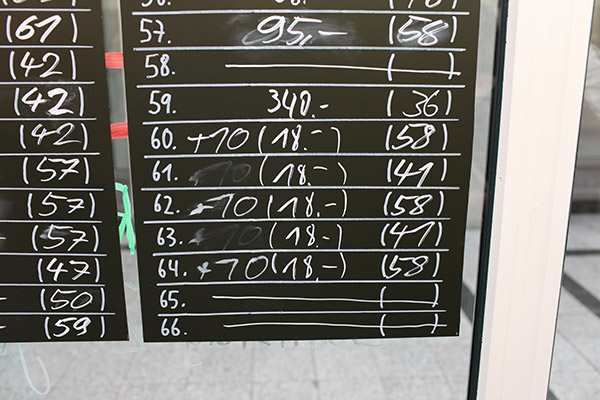 (61)
(42)
(42)
(42)
(57)
(57)
(57)
(47)
(50)
(59)
57. 95,- (58)
58. ( )
59. 340.- (36)
60. +70 (18.-) (58)
61. 70 (18.-) (41)
62. +70 (18.-) (58)
63. 70 (18.-) (41)
64. +70 (18.-) (58)
65. ( )
66. ( )